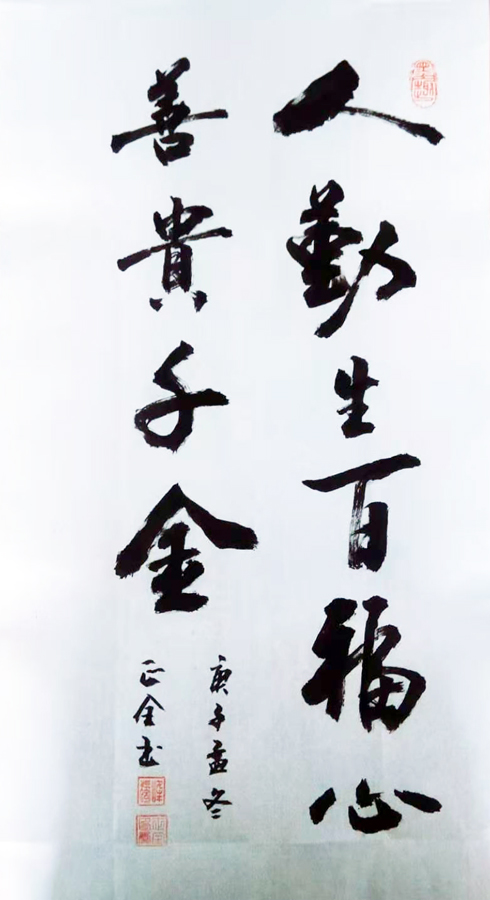 人勤生百福心
善貴千金
庚子孟冬
正全书